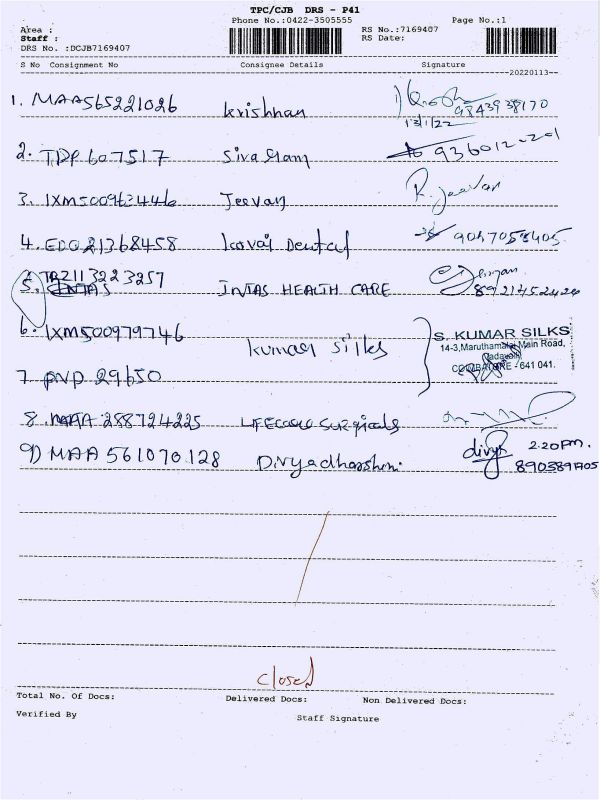 TPC/CJB DRS - P41
Phone No.:0422-3505555 Page No.:1
Area :
Staff :
DRS No. :DCJB7169407
RS No.:7169407
RS Date:
S No Consignment No Consignee Details Signature
20220113
1. MAA565221026 Krishnan 1) 9843938170
13/1/22
2. TDP607517 Siva Ram
3. IXM500963446 Jeevan R. Jeevan
4. Kovai Dental
5. TRZ113223257 INTAS HEALTH CARE
6. IXM500979746 Kumar Silks
S. KUMAR SILKS
14-3, Maruthamalai Main Road,
Vadavalli
COIMBATORE - 641 041.
7. PND 29650
8. MAA 288724225 LIFECARE Surgicals
9) MAA 561070128 Divyadharshini divya 2.20pm.
closed
Total No. Of Docs: Delivered Docs: Non Delivered Docs:
Verified By Staff Signature